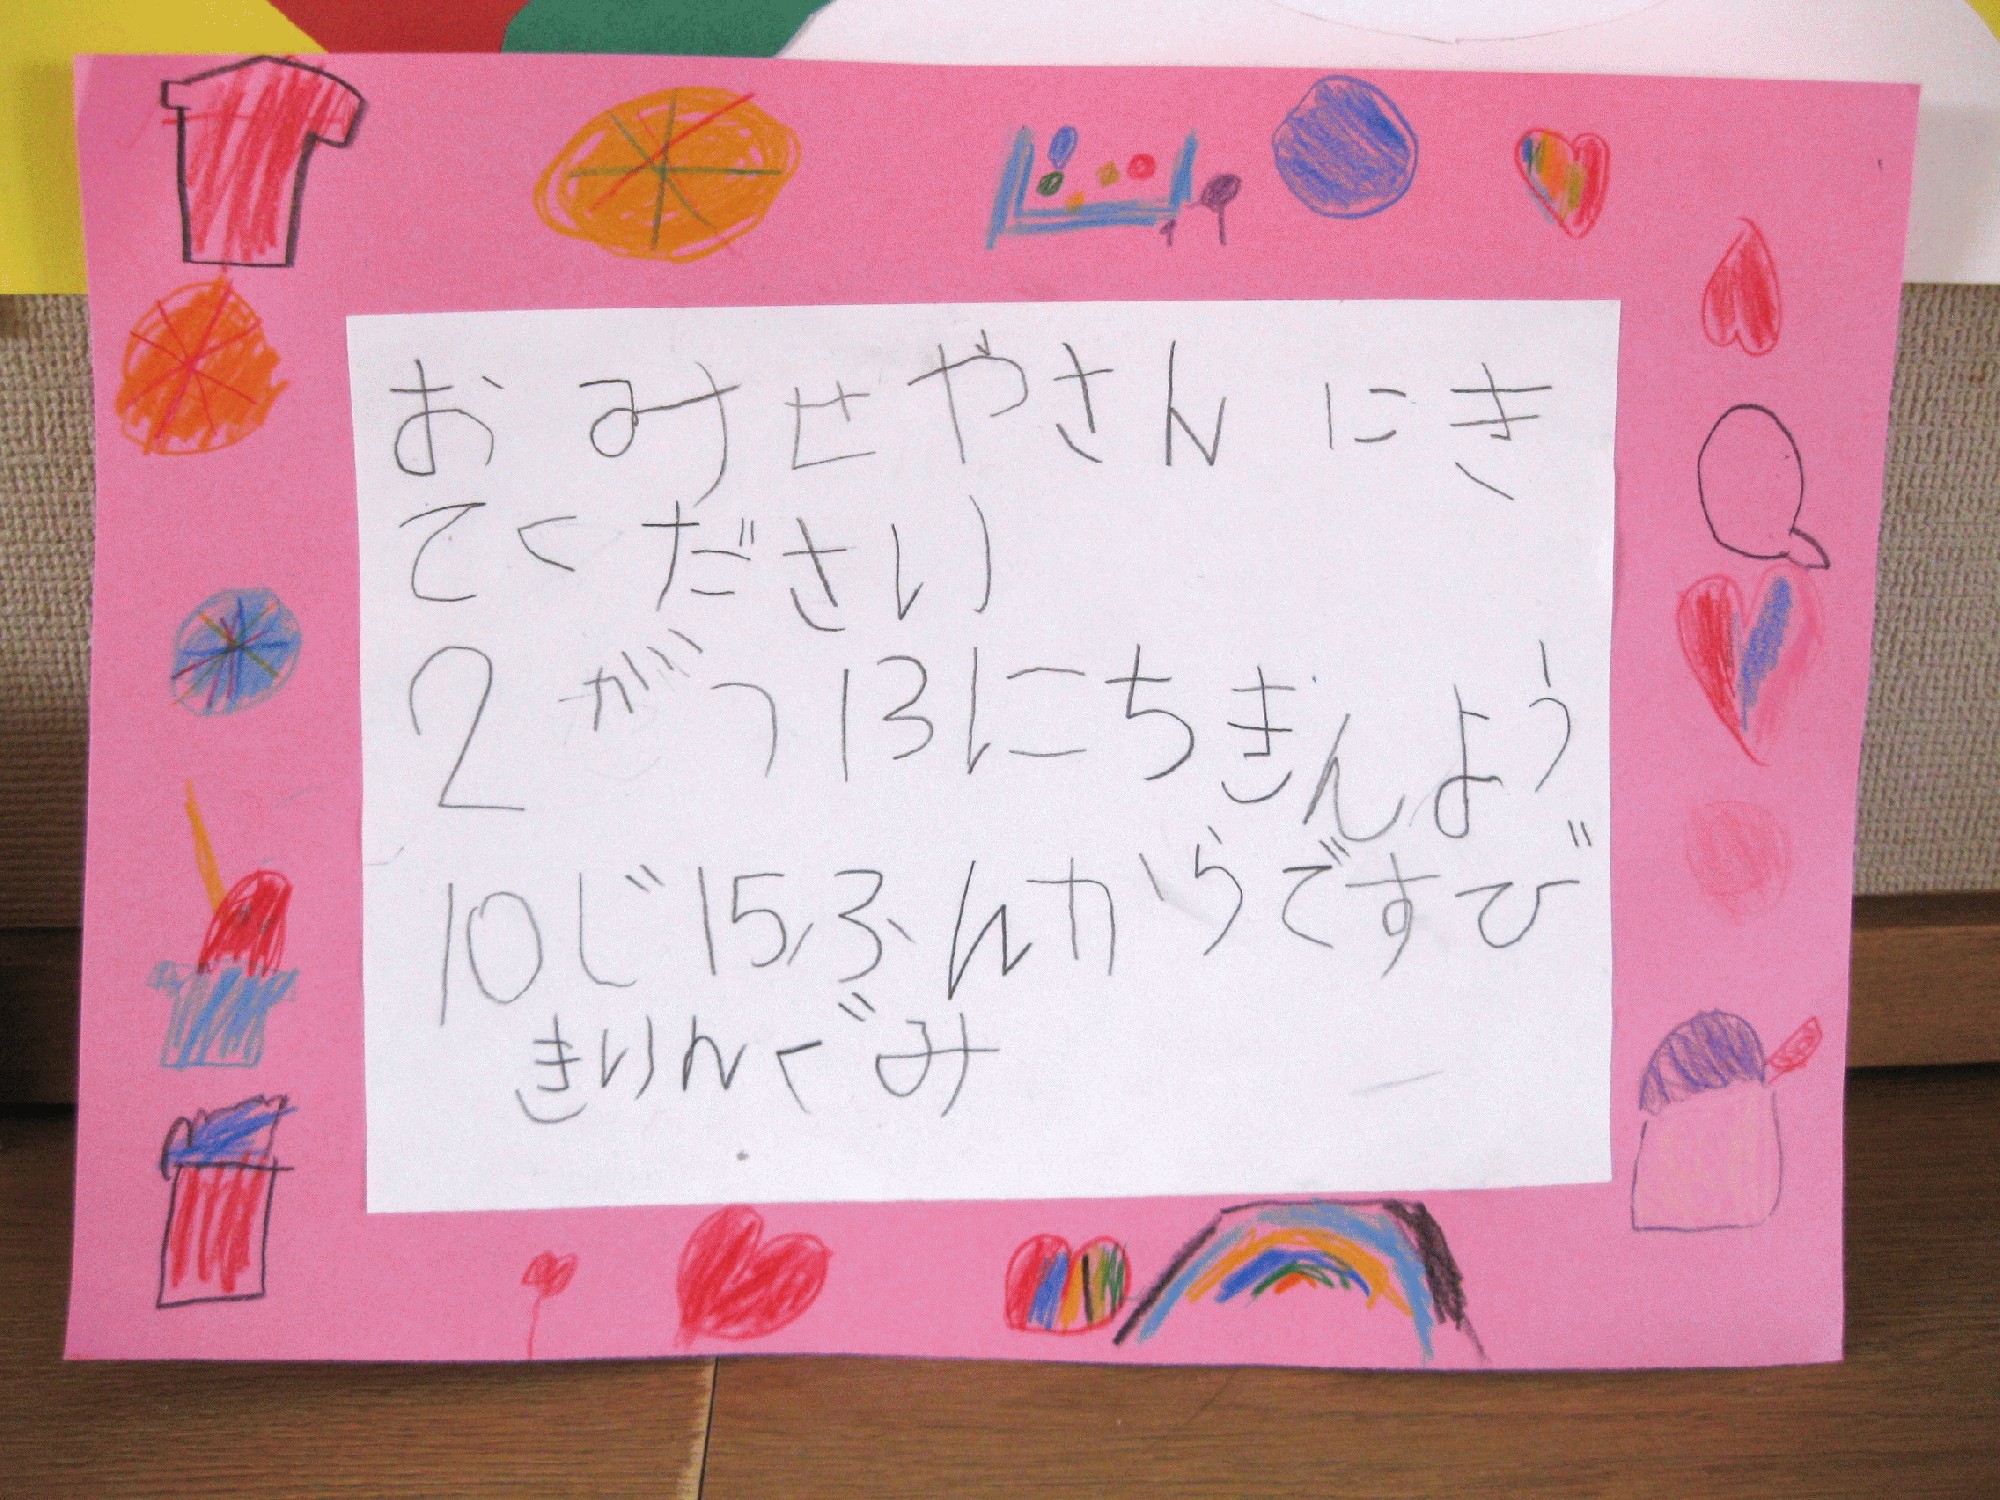 おみせやさんにき
てください
2がつ13にちきんよう
10じ15ふんからですび
きりんぐみ